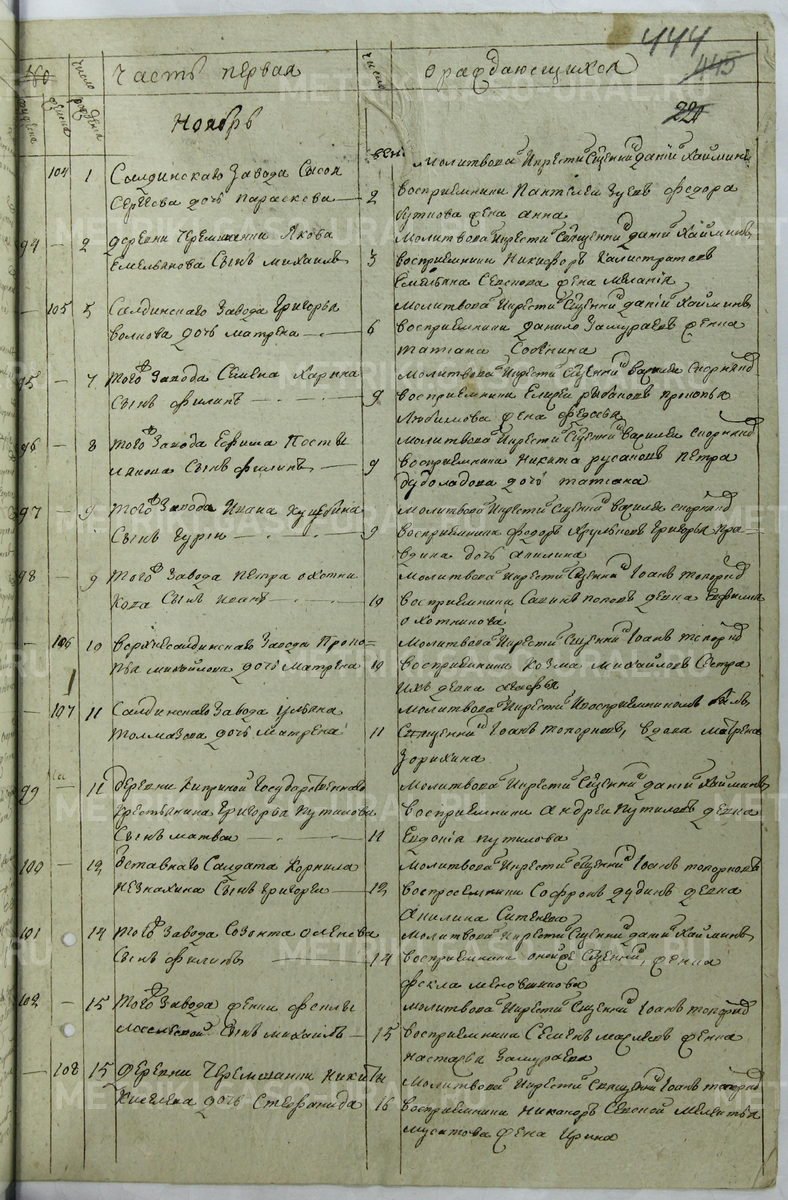 444
445
221
Число рождения
Часть первая
Число
о раждающихся
Ноябрь
крещ
104 1 Салдинскаго Завода Сысоя
Сергѣева дочь Параскева — 2
Молитвовалъ и крестилъ Сщенникъ Данiилъ Хайминъ
восприемники Пантелей Зуевъ Федора
Путилова жена Анна
94 — 2 деревни Черемшанки Якова
Емельянова Сынъ Михаилъ 3
Молитвовалъ и крестилъ Священникъ Данiилъ Хайминъ
восприемники Никифоръ Калистратовъ
Емельяна жена Меланiя
— 105 5 Салдинскаго Завода Григорья
Волкова дочь Матрена — 6
Молитвовалъ и крестилъ Сщенникъ Данiилъ Хайминъ
восприемники Данило Замураевъ женка
Татiана
95 — 7 того Завода Семена Харина
Сынъ Филипъ — 9
Молитвовалъ и крестилъ Сщенникъ Василей
восприемники Елисей Рыбаковъ Прокопья
Любимова жена Федосья
96 — 8 того Завода Ефима Посты
лякова Сынъ Филипъ — 9
Молитвовалъ и крестилъ Сщенникъ Василей
восприемники Никита Русаковъ Петра
дочь Татiана
97 — 9 того Завода Ивана
Сынъ Гурiй — 9
Молитвовалъ и крестилъ Сщенникъ Василей
восприемники Федоръ Григорья
дочь Акилина
98 — 9 того Завода Петра Охотни
кова Сынъ Иванъ — 10
Молитвовалъ и крестилъ Сщенникъ Iоанъ Топорковъ
восприемники Савинъ Поповъ девка Евфимiя
Охотникова
— 106 10 Верхнесалдинскаго Завода Проко-
пья Михайлова дочь Матрена 10
Молитвовалъ и крестилъ Сщенникъ Iоанъ Топорковъ
восприемники Козма Михайловъ Сестра
ихъ девка
— 107 11 Салдинскаго Завода Ульяна
Толмазова дочь Матрена 11
Молитвовалъ и крестилъ и восприемникомъ былъ
Священникъ Iоанъ Топорковъ, вдова Матрена
Зорихина
99 — 11 Деревни Киприной Государственнаго
крестьянина Григорья Путилова
Сынъ Матвей — 11
Молитвовалъ и крестилъ Сщенникъ Данiилъ Хайминъ
восприемники Андрей Путиловъ девка
Евдокiя Путилова
100 — 12 Отставнаго Салдата Корнила
Незнахина Сынъ Григорей — 12
Молитвовалъ и крестилъ Сщенникъ Iоанъ Топорковъ
восприемники Софронъ Дудинъ девка
Акилина Ситенкова
101 — 14 того Завода Созонта
Сынъ Филипъ — 14
Молитвовалъ и крестилъ Сщенникъ Данiилъ Хайминъ
восприемники женка
Фекла Меновщикова
102 — 15 того Завода женки Феклы
Сынъ Михаилъ — 15
Молитвовалъ и крестилъ Сщенникъ Iоанъ Топорковъ
восприемники Семенъ женка
Настасья Замураева
— 108 15 Деревни Черемшанки Никиты
Киселева дочь Стефанида 16
Молитвовалъ и крестилъ Священникъ Iоанъ Топорковъ
восприемники Никаноръ Мелентья
жена Ирина